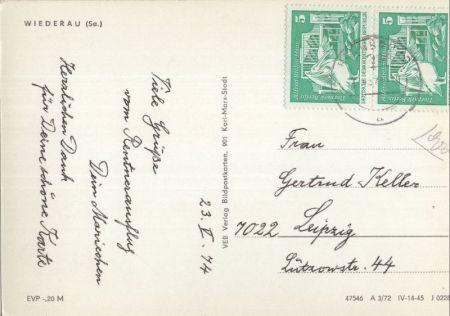 WIEDERAU (Sa.)
Viele Grüße
vom Rentnerausflug
Dein Mariechen
Herzlichen Dank
für Deine schöne Karte
23. V. 74
VEB Verlag Bildpostkarten, 901 Karl-Marx-Stadt
5
5
Frau
Gertrud Keller
7022 Leipzig
Lützowstr. 44
EVP -,20 M
47546 A 3/72 IV-14-45 J 0228